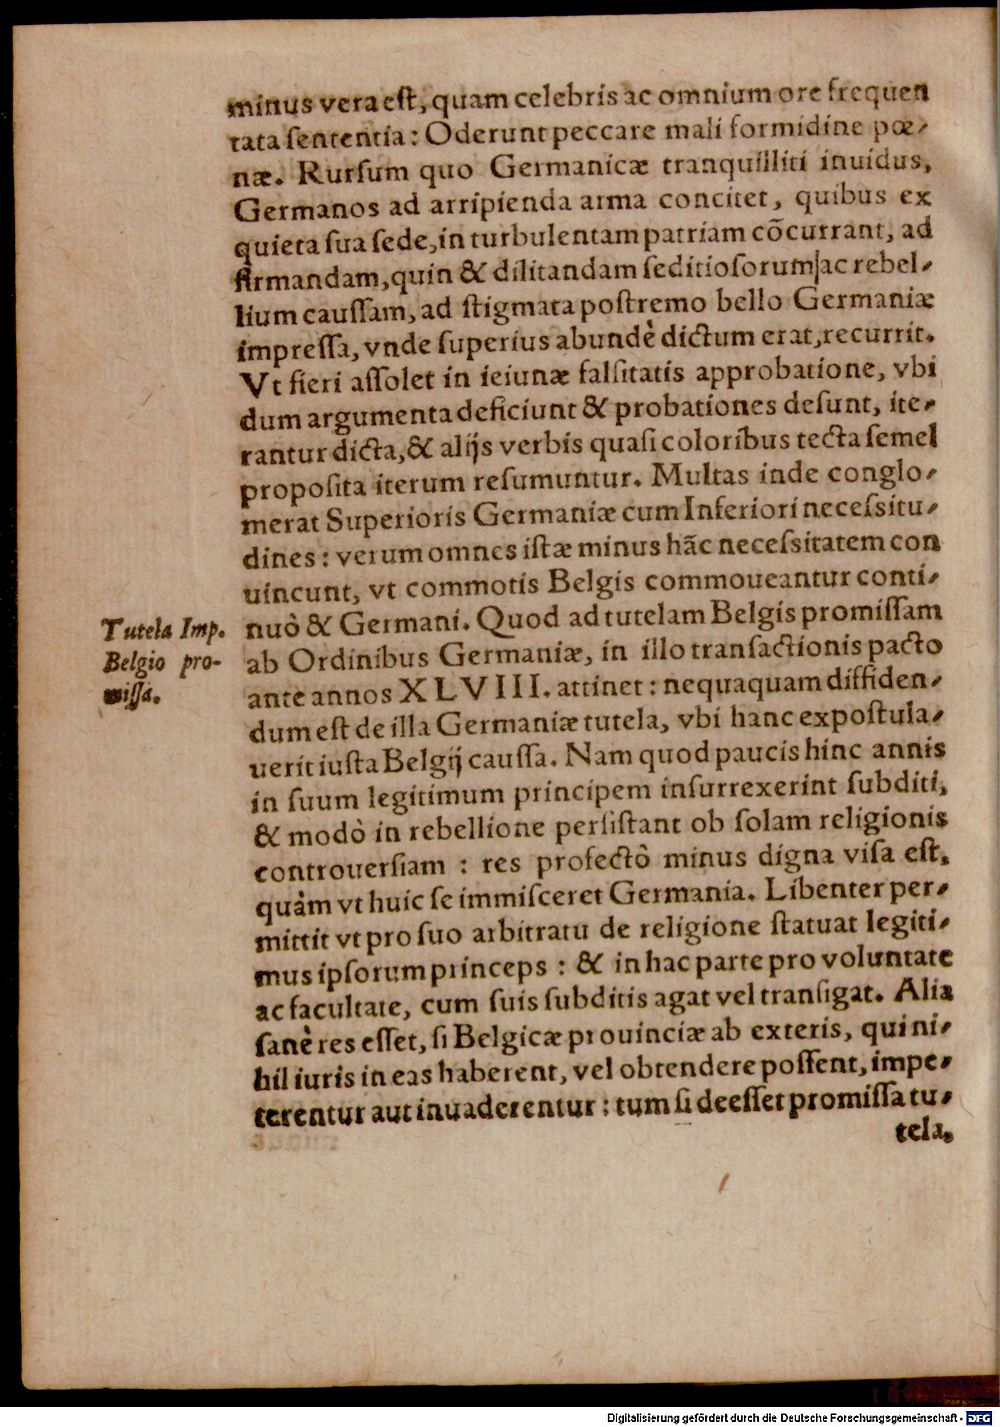 minus vera eſt, quam celebris ac omnium ore frequen
tata ſententia: Oderunt peccare mali formidine pœ-
næ. Rurſum quo Germanicæ tranquilliti inuidus,
Germanos ad arripienda arma concitet, quibus ex
quieta ſua ſede, in turbulentam patriam cõcurrant, ad
firmandam, quin & dilitandam ſeditioſorum ac rebel-
lium cauſſam, ad ſtigmata poſtremo bello Germaniæ
impreſſa, vnde ſuperius abundè dictum erat, recurrit.
Vt fieri aſſolet in ieiunæ falſitatis approbatione, vbi
dum argumenta deficiunt & probationes deſunt, ite-
rantur dicta, & alijs verbis quaſi coloribus tecta ſemel
propoſita iterum reſumuntur. Multas inde conglo-
merat Superioris Germaniæ cum Inferiori neceſsitu-
dines: verum omnes iſtæ minus hãc neceſsitatem con
uincunt, vt commotis Belgis commoueantur conti-
nuò & Germani. Quod ad tutelam Belgis promiſſam
ab Ordinibus Germaniæ, in illo tranſactionis pacto
ante annos XLVIII. attinet: nequaquam diffiden-
dum eſt de illa Germaniæ tutela, vbi hanc expoſtula-
uerit iuſta Belgij cauſſa. Nam quod paucis hinc annis
in ſuum legitimum principem inſurrexerint ſubditi,
& modò in rebellione perſiſtant ob ſolam religionis
controuerſiam: res profectò minus digna viſa eſt,
quàm vt huic ſe immiſceret Germania. Libenter per-
mittit vt pro ſuo arbitratu de religione ſtatuat legiti-
mus ipſorum princeps: & in hac parte pro voluntate
ac facultate, cum ſuis ſubditis agat vel tranſigat. Alia
ſanè res eſſet, ſi Belgicæ prouinciæ ab exteris, qui ni-
hil iuris in eas haberent, vel obtendere poſſent, impe-
terentur aut inuaderentur: tum ſi deeſſet promiſſa tu-
tela.
Tutela Imp.
Belgio pro-
miſſa.
Digitalisierung gefördert durch die Deutsche Forschungsgemeinschaft - DFG